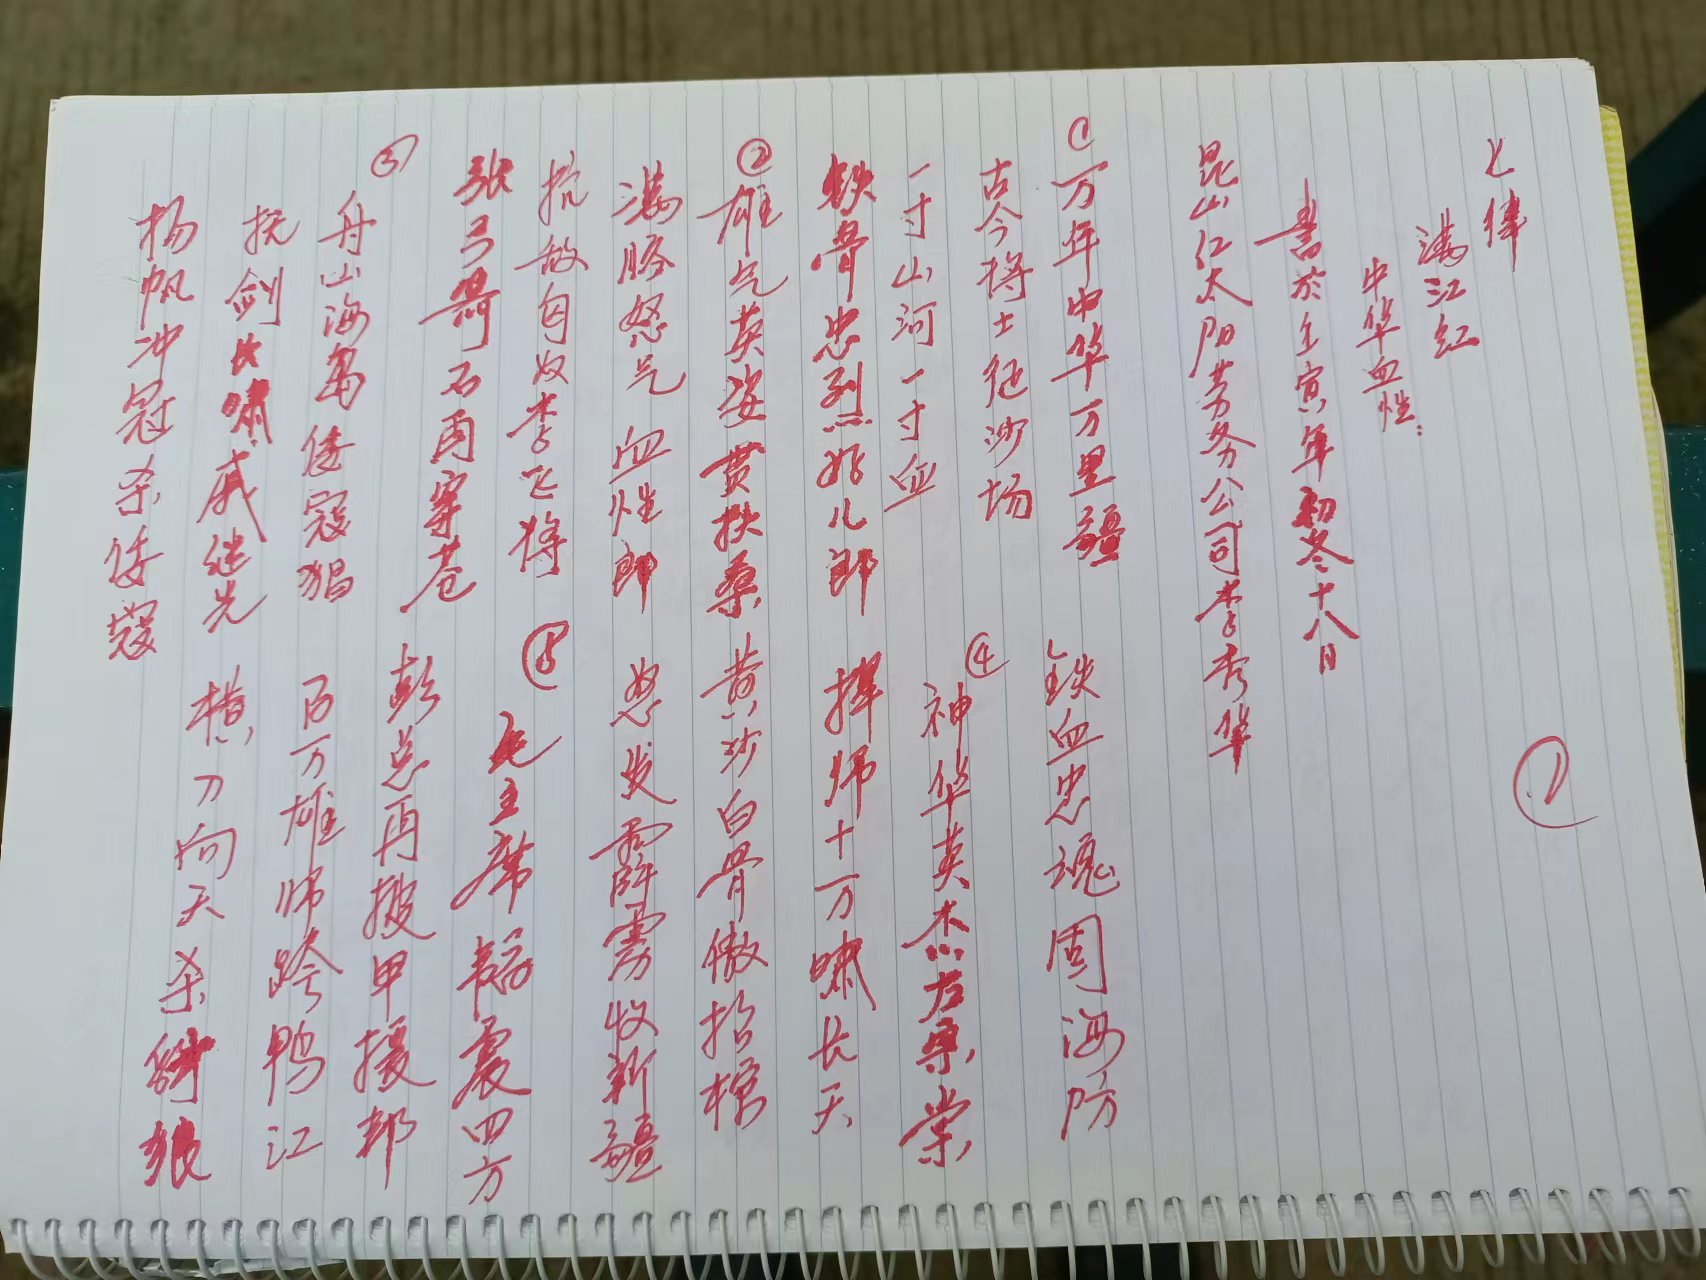 七律
满江红
中华血性:
書於壬寅年初冬十八日
昆山红太阳劳务公司李秀华
①
①万年中华万里疆
古今将士征沙场
一寸山河一寸血
铁骨忠烈好儿郎
②雄气英姿贯扶桑
满胳怒气血性郎
抗敌匈奴李飞将
张弓 石雨穿苍
③
舟山海岛倭寇猖
抚剑长啸戚继光
杨帆冲冠杀倭寇
铁血忠魂固海防
④
神华英杰左宗棠
挥师十万啸长天
黄沙白骨傲抬棺
怒发霹雳收新疆
⑤
毛主席 震四方
彭总再披甲援邦
百万雄师跨鸭江
横刀向天杀 狼